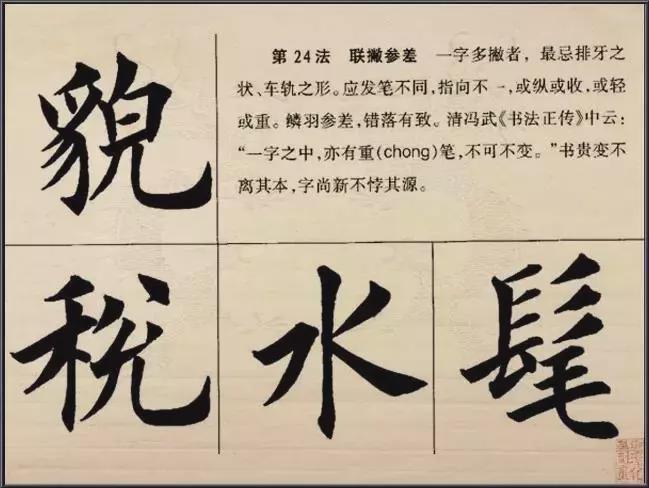 第24法 联撇参差 一字多撇者，最忌排牙之
状、车轨之形。应发笔不同，指向不一，或纵或收，或轻
或重。鳞羽参差，错落有致。清冯武《书法正传》中云：
“一字之中，亦有重(chong)笔，不可不变。”书贵变不
离其本，字尚新不悖其源。
貌
税 水 髦